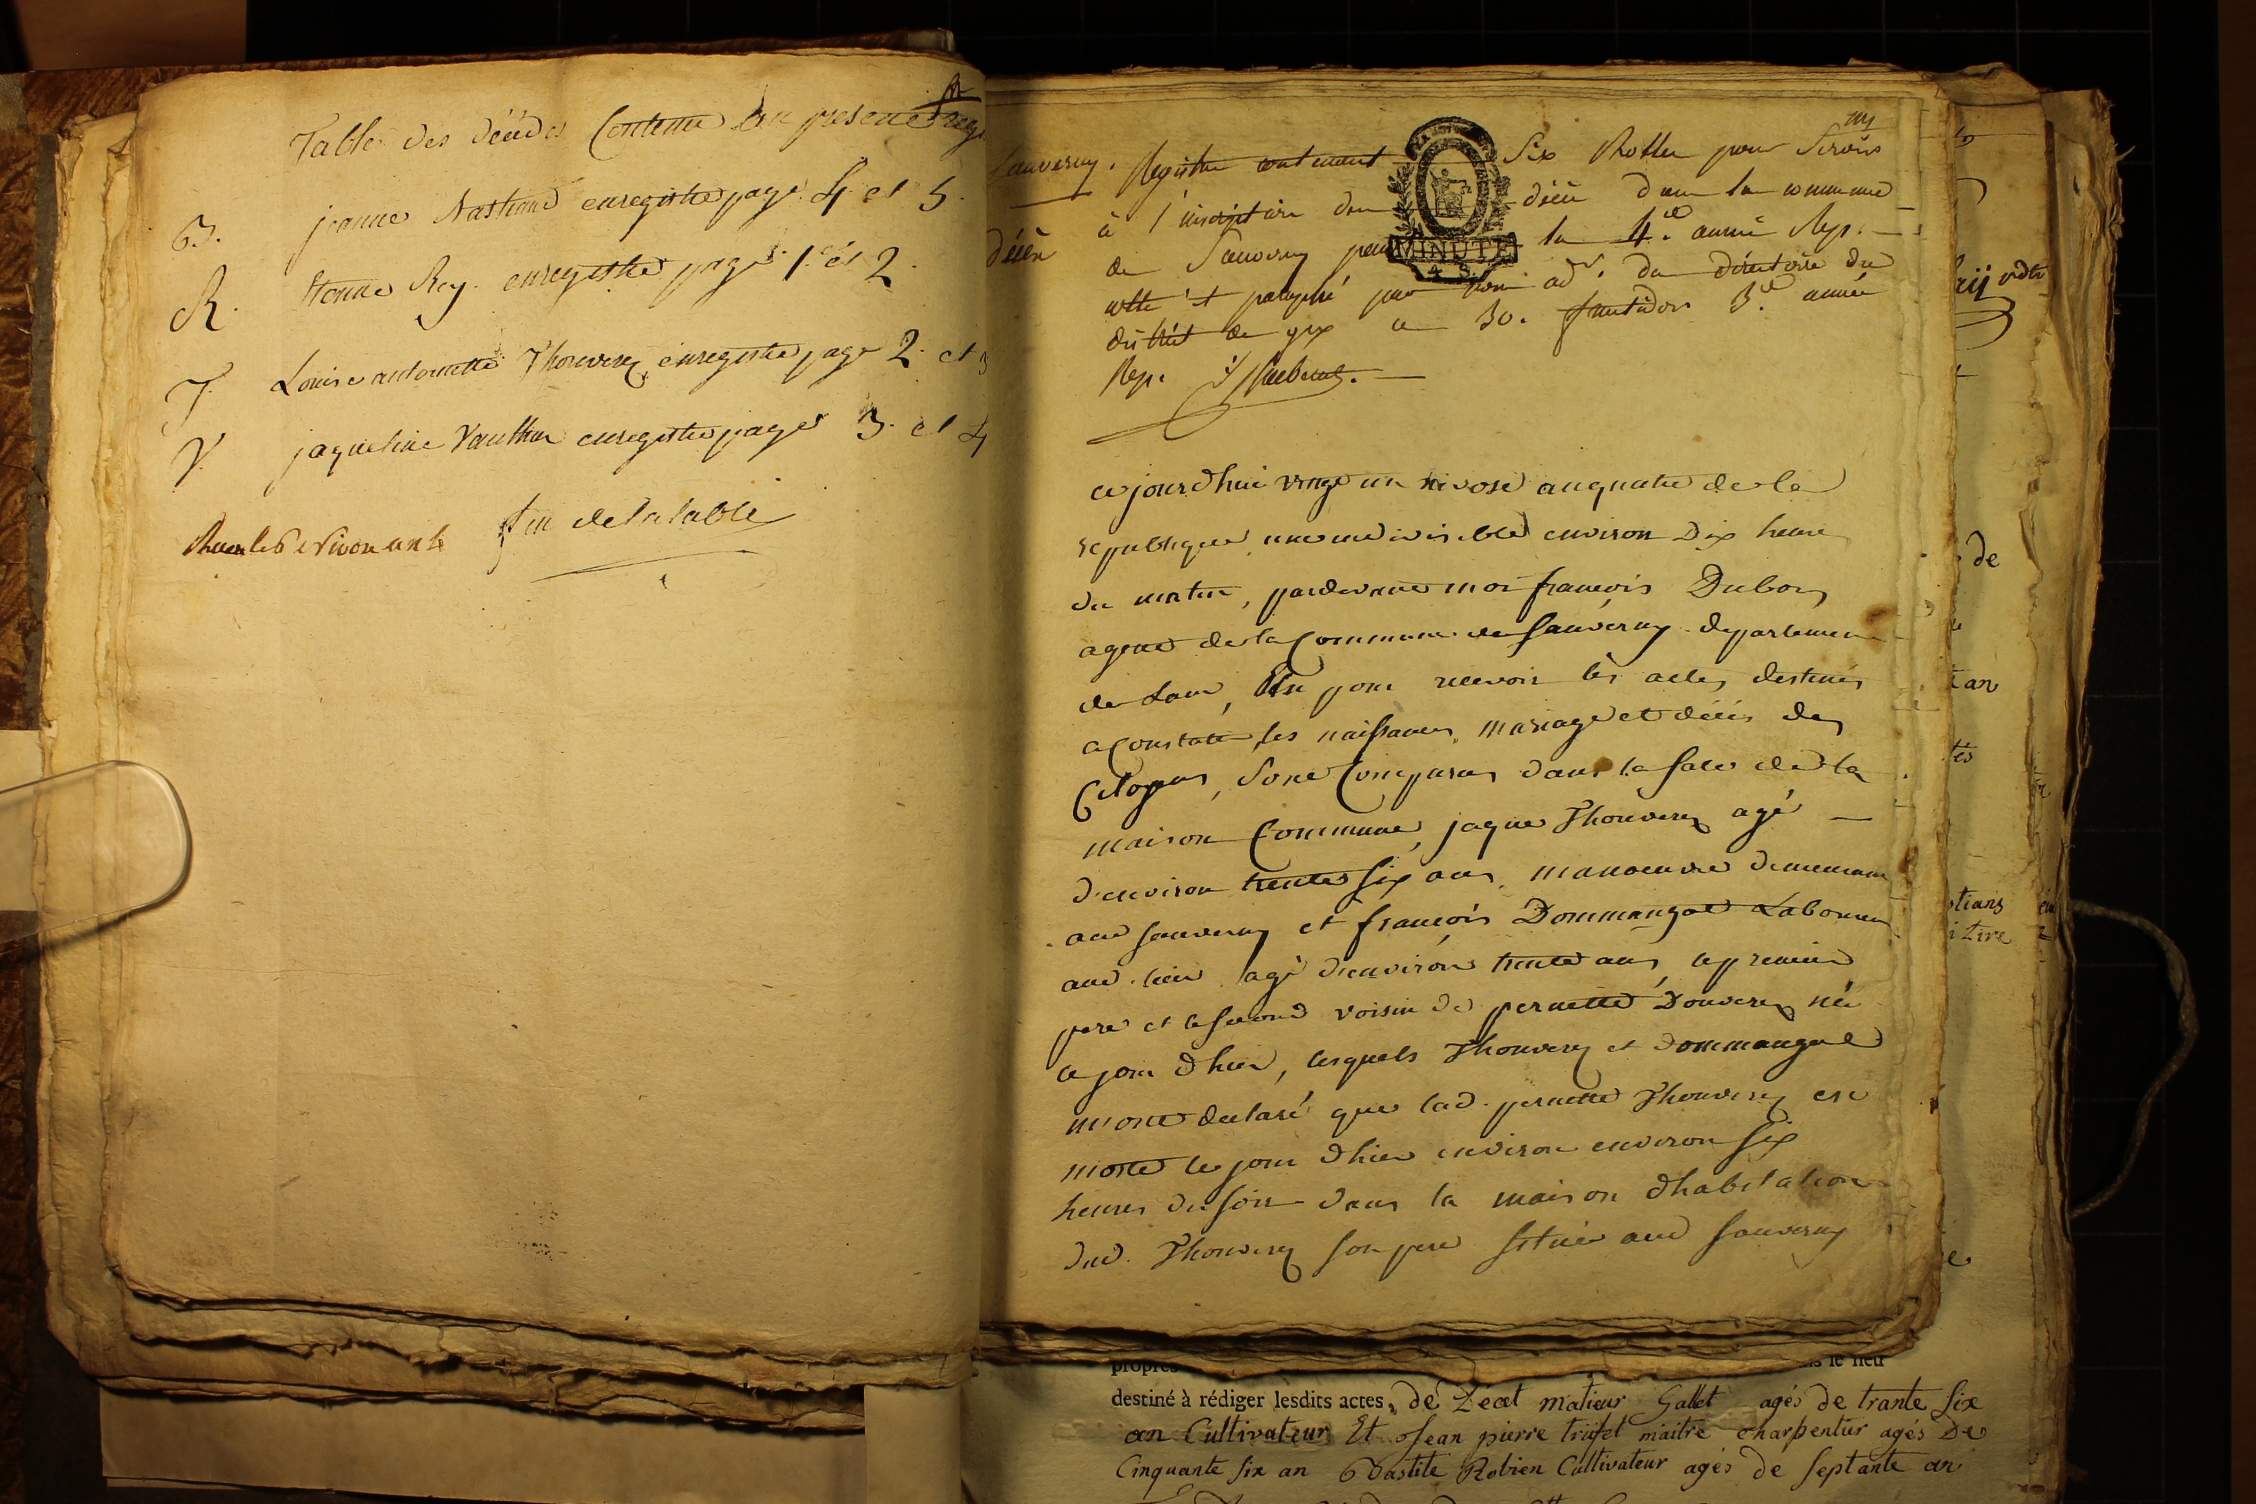 Table des décédés Contenue au present reg
B. jeanne Bastiand enregistré page 4 et 5.
R. Etienne Rey enregistré page 1er et 2.
T. Louise antoinette Thouverey enregistré page 2 et 3
V. jaqueline Vauthier enregistré pages 3 et 4
fin de la table
Sauverny. Registre contenant Six Rolles pour Servir
décès à l'inscription des décès dans la commune
de Sauverny pour la 4e. année Rep.
MINUTE
cotté et paraphé par nous adr. du directoire du
district de gex ce 30. fructidor 3e. année
Rep.
ce jourdhui vingt un nivose an quatre de la
republique une indivisible environ Dix heure
du matin, pardevant moi francois Dubois
agent de la Commune de Sauverny departement
de Lain, Elu pour recevoir les actes destinés
a Constater les naissances, mariage et décés des
Citoyens, Sont Comparus dans la sale de la
maison Commune, jaque Thouverey agé
denviron trente six ans, manoeuvre demeurant
aud Sauverny et francois Dommangat Laboureur
aud. lieu agé denviron trente ans, le premier
pere et le second voisin de pernette Douverey née
le jour dhier, lesquels Thouverey et dommangat
m'ont declaré que lad. pernette Thouverey est
morte le jour dhier environ environ six
heures du soir dans la maison dhabitation
dud. Thouverey son pere située aud Sauverny
destiné à rédiger lesdits actes, de matieur Gallet agés de trante six
an Cultivateur Et Jean pierre maitre charpentier agés De
Cinquante six an Bastite Robien Cultivateur agés de septante an